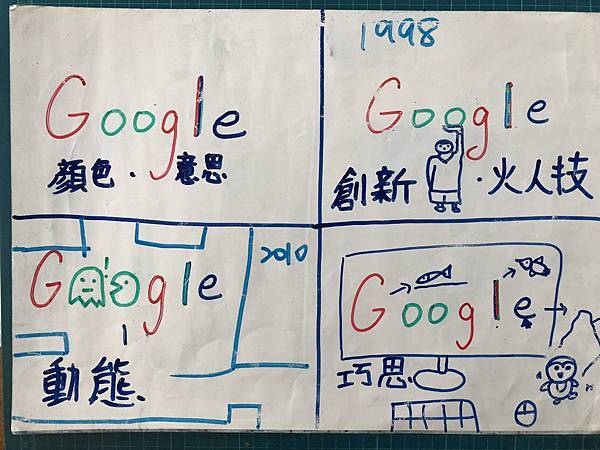 Google
顏色．意思
1998
Google
創新．火人技
2010
Google
動態
Google
巧思